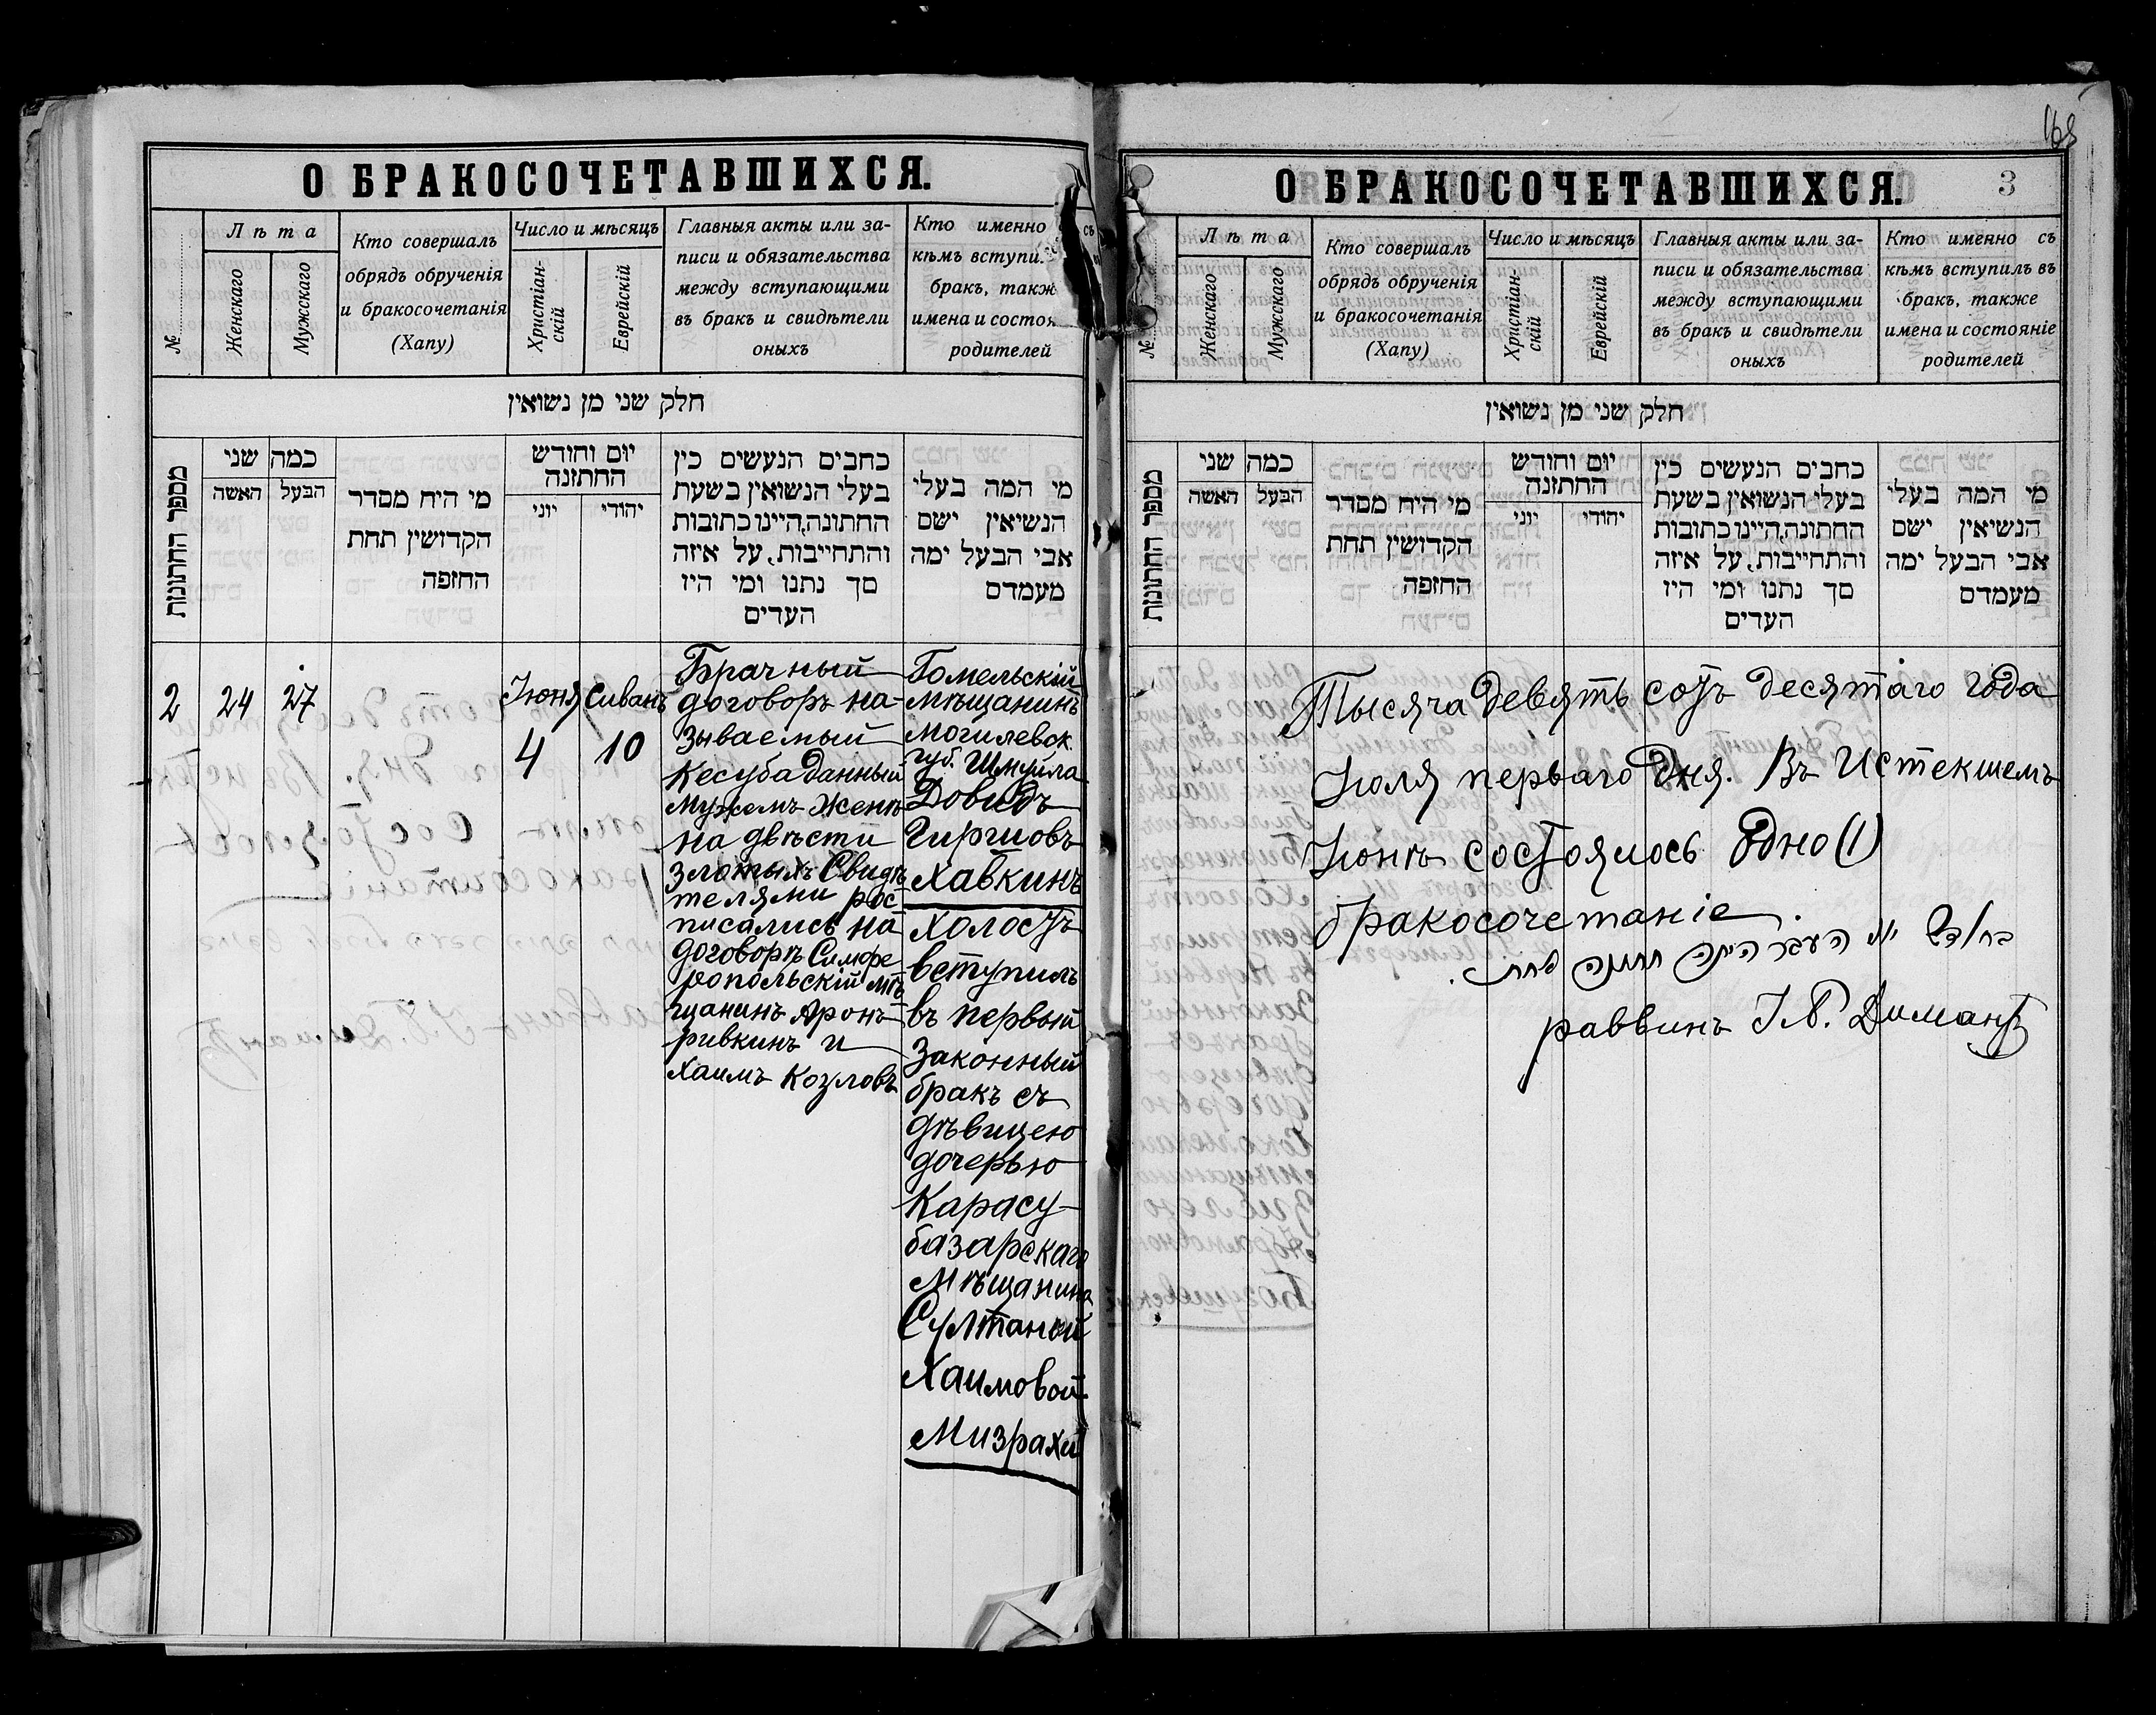 О БРАКОСОЧЕТАВШИХСЯ.
№
Лѣта
Женскаго
Мужскаго
Кто совершалъ
обрядъ обрученія
и бракосочетанія
(Хапу)
Число и мѣсяцъ
Христіан-
скій
Еврейскій
Главныя акты или за-
писи и обязательства
между вступающими
въ бракъ и свидѣтели
оныхъ
Кто именно
кѣмъ вступи
бракъ, такж
имена и состоя
родителей
חלק שני מן נשואין
מספר החתונות
כמה שני
האשה
הבעל
מי היח מסדר
הקדושין תחת
החופה
יום וחודש
החתונה
יוני
יהודי
כחבים הנעשים כין
בעלי הנשואין בשעת
החתונה,היינו כתובות
והתחייבות, על איזה
סך נתנו ומי היו
העדים
מי המה בעלי
הנשיאין ישם
אבי הבעל ימה
מעמדם
2
24
27
Іюня
4
Сиванъ
10
Брачный
договоръ на-
зываемый
Кесуба данный
мужемъ женѣ
на двѣсти
злотыхъ Свидѣ
телями рос
писались на
договорѣ Симфе
ропольскій мѣ
щанинъ Аронъ
Ривкинъ и
Хаимъ Козловъ
Гомельскій
мѣщанинъ
Могилевск.
губ. Шмуйла
Довидъ
Гиршовъ
Хавкинъ
холостъ
вступилъ
въ первый
законный
бракъ съ
дѣвицею
дочерью
Карасу-
базарскаго
мѣщанина
Султаной
Хаимовой
Мизрахи
168
О БРАКОСОЧЕТАВШИХСЯ.
3
№
Лѣта
Женскаго
Мужскаго
Кто совершалъ
обрядъ обрученія
и бракосочетанія
(Хапу)
Число и мѣсяцъ
Христіан-
скій
Еврейскій
Главныя акты или за-
писи и обязательства
между вступающими
въ бракъ и свидѣтели
оныхъ
Кто именно съ
кѣмъ вступилъ въ
бракъ, также
имена и состояніе
родителей
חלק שני מן נשואין
מספר החתונות
כמה שני
האשה
הבעל
מי היח מסדר
הקדושין תחת
החופה
יום וחודש
החתונה
יוני
יהודי
כחבים הנעשים כין
בעלי הנשואין בשעת
החתונה,היינו כתובות
והתחייבות, על איזה
סך נתנו ומי היו
העדים
מי המה בעלי
הנשיאין ישם
אבי הבעל ימה
מעמדם
Тысяча девять сотъ десятаго года
Іюля перваго дня. Въ истекшемъ
Іюнѣ состоялось одно (1)
бракосочетаніе.
העבר היתה חתונה אחת
раввинъ І. Димантъ